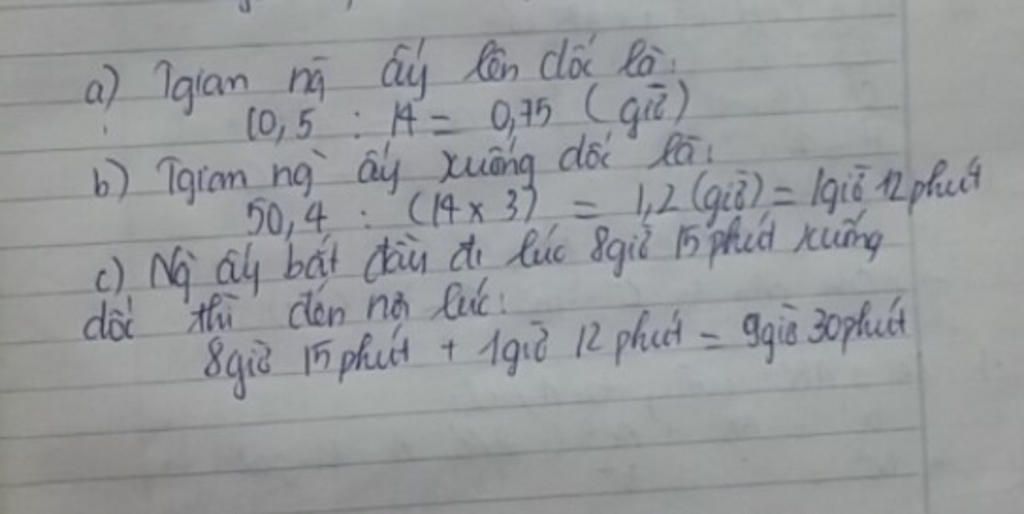 a) Tgian ng̀ ấy lên dốc là:
10,5 : 14 = 0,75 (giờ)
b) Tgian ng̀ ấy xuống dốc là:
50,4 : (14 x 3) = 1,2 (giờ) = 1giờ 12 phút
c) Ng̀ ấy bắt đầu đi lúc 8giờ 15 phút xuống
dốc thì đến nơi lúc:
8giờ 15 phút + 1giờ 12 phút = 9giờ 30 phút